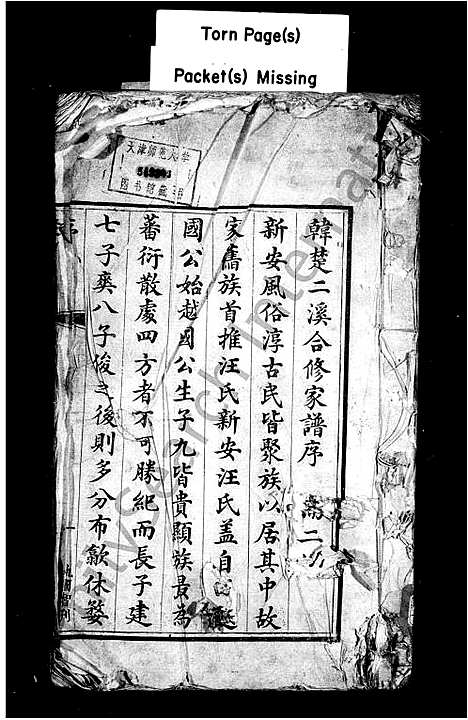 Torn Page(s)
Packet(s) Missing
天津師范大学
图书馆藏书
韓楚二溪合修家譜序
新安風俗淳古民皆聚族以居其中故
家舊族首推汪氏新安汪氏盖自
國公始越國公生子九皆貴顯族最為
蕃衍散處四方者不可勝紀而長子建
七子爽八子俊之後則多分布歙休婺
序